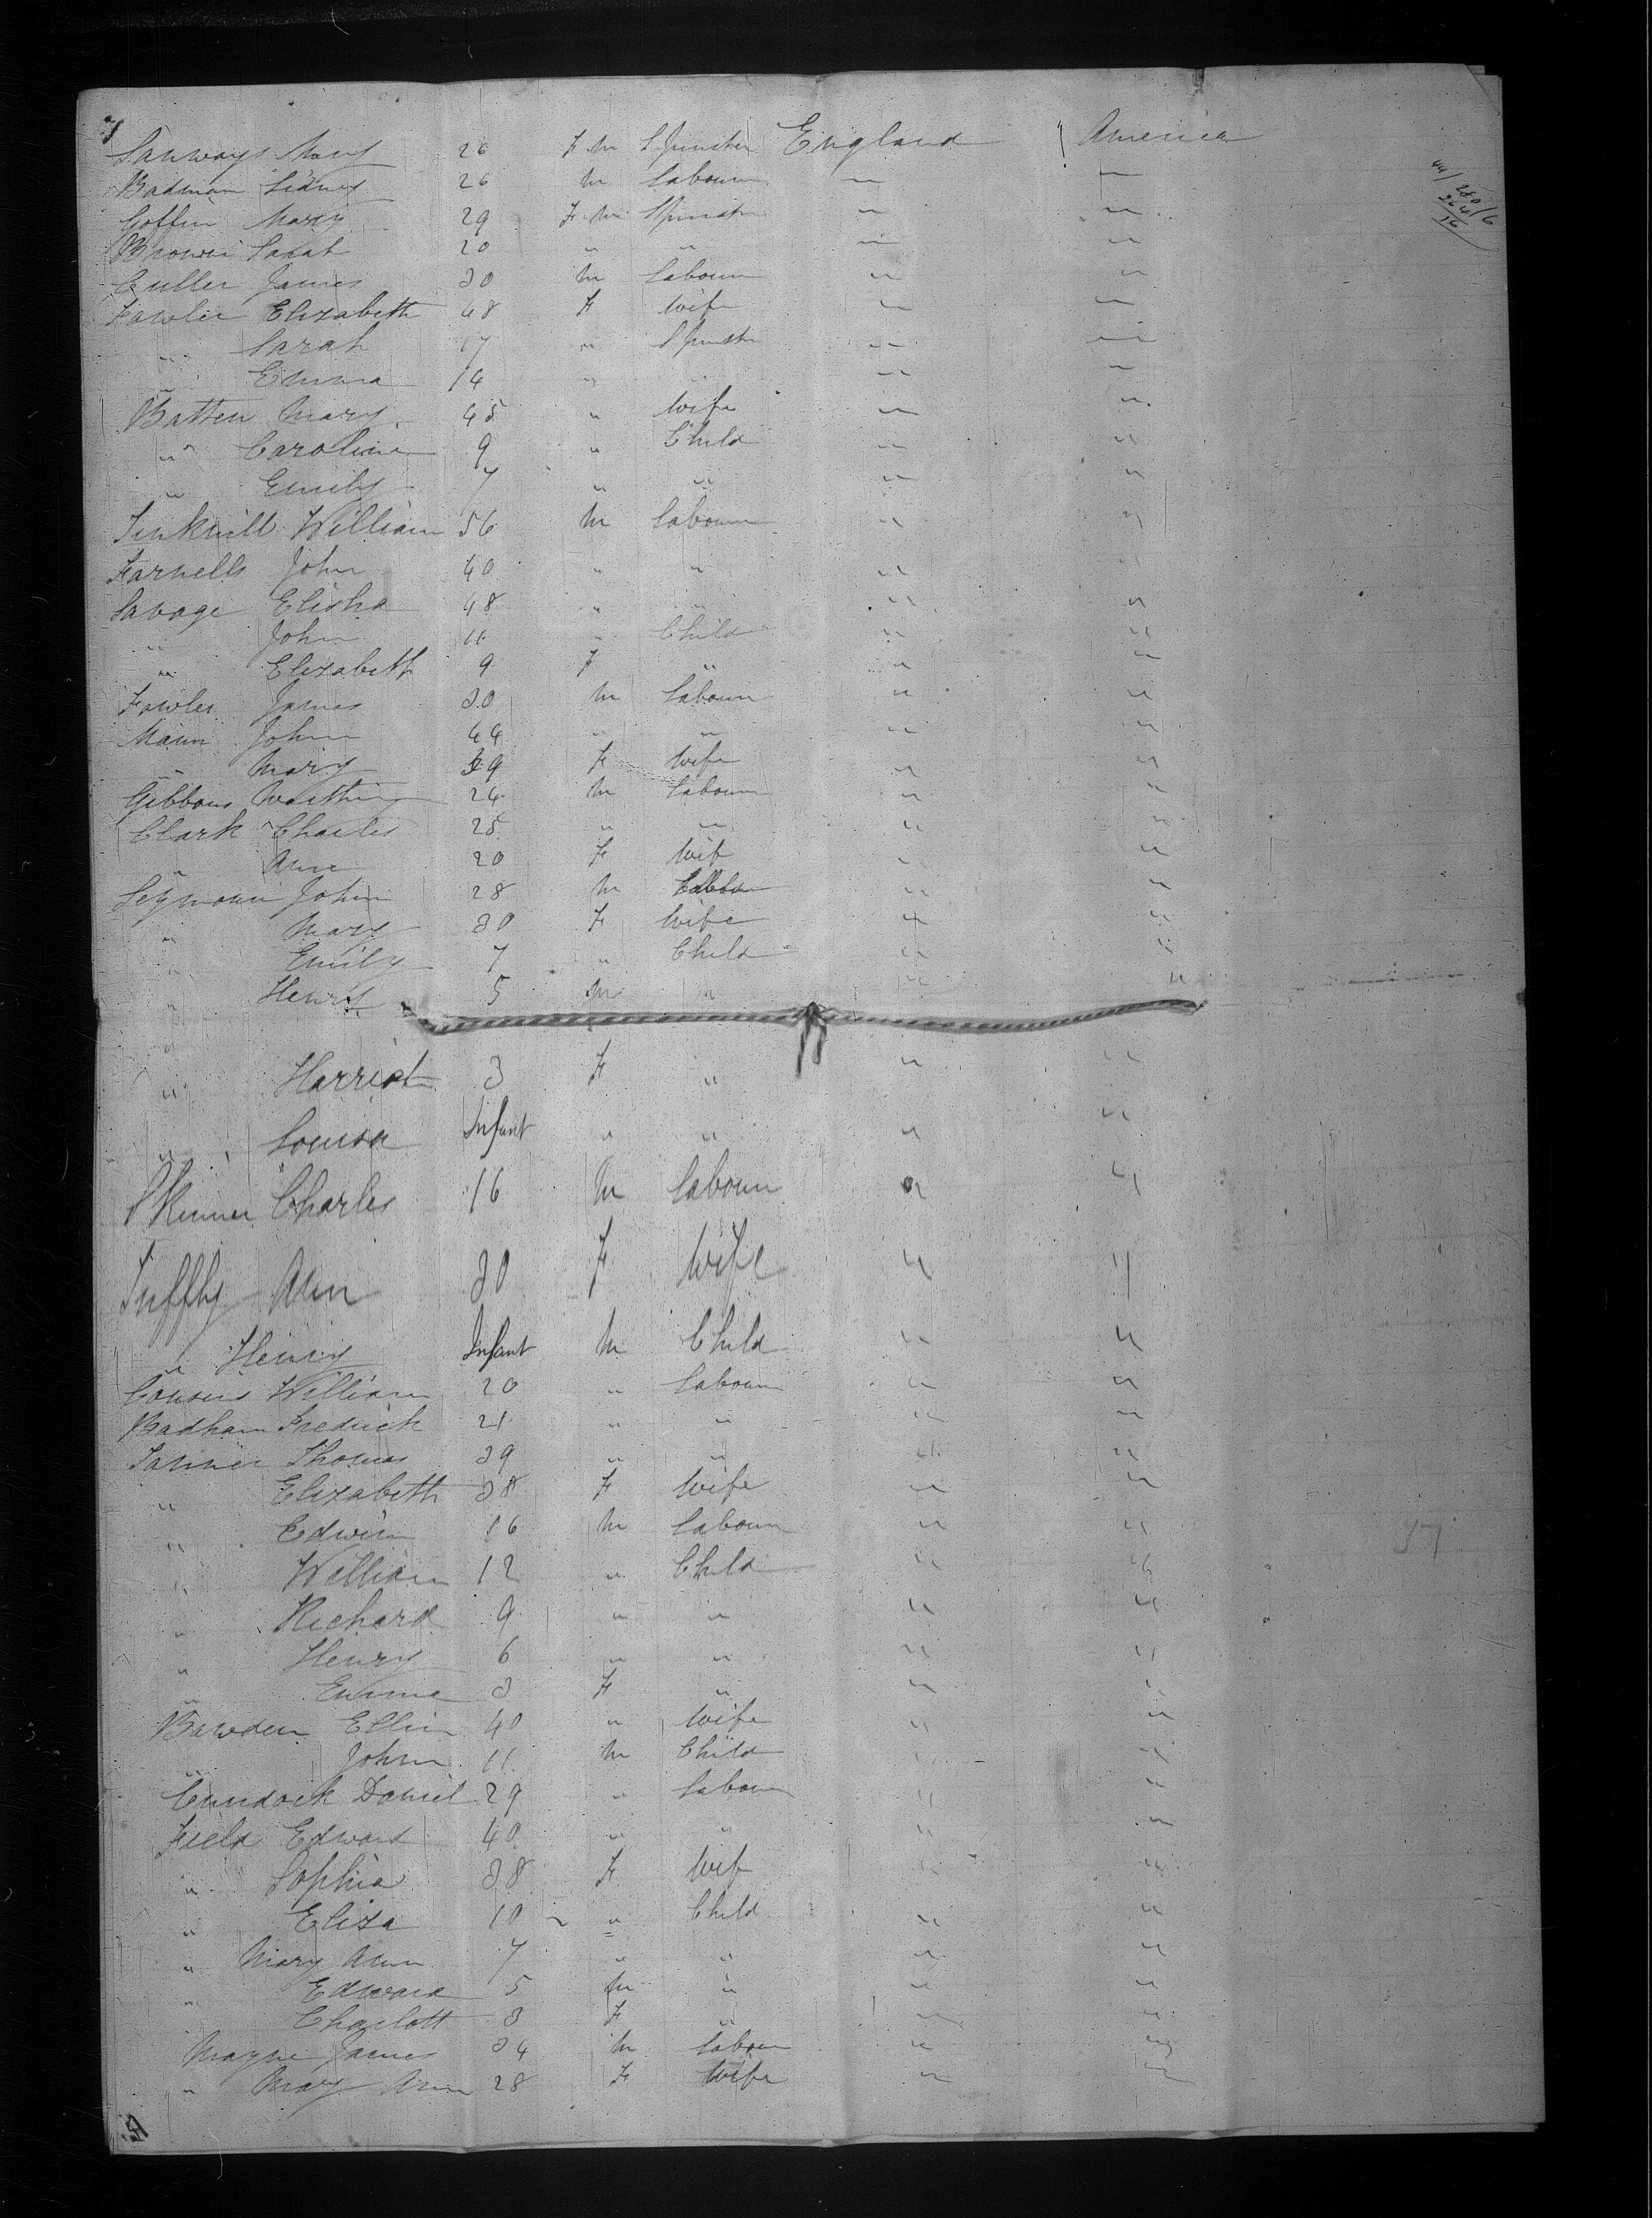 Sanways Mary 26 F m Spinster England America
Badman Sidney 26 m Labourr " "
Goffin Mary 29 F m Spinstr " "
Brown Sarah 20 " " " "
Culler James 30 m Labourr " "
Fowler Elizabeth 48 F Wife " "
" Sarah 17 " Spinstr " "
" Emma 14 " " " "
Batten Mary 45 " Wife " "
" Caroline 9 " Child " "
" Emily 7 " " " "
William 56 m Labourr " "
Farnells John 40 " " " "
Savage Elisha 48 " " " "
" John 11 " Child " "
" Elizabeth 9 F " " "
Fowler James 30 m Labourr " "
Mann John 44 " " " "
" Mary 39 F Wife " "
Gibbons 24 m Labourr " "
Clark Charles 25 " " " "
" Ann 20 F Wif " "
Seymour John 28 m " "
" Mary 30 F Wife " "
" Emily 7 " Child " "
" Henry 5 m " " "
" Harriot 3 F " " "
" Louisa Infant " " " "
Skinner Charles 16 m Labourr " "
Ann 30 F Wife " "
" Henry Infant m Child " "
Cousins William 20 " Labourr " "
Badham Fredrick 21 " " " "
Tanner Thomas 39 " " " "
" Elizabeth 38 F Wife " "
" Edwin 16 m Labourr " "
" William 12 " Child " "
" Richard 9 " " " "
" Henry 6 " " " "
" Emma 3 F " " "
Bawden Ellin 40 " Wife " "
" John 11 m Child " "
Daniel 29 " Labour " "
Field Edward 40 " " " "
" Sophia 38 F Wif " "
" Eliza 10 " Child " "
" Mary Ann 7 " " " "
" Edward 5 m " " "
" Charlott 3 F " " "
Mayne James 34 m Labour " "
" Mary Ann 28 F Wife " "